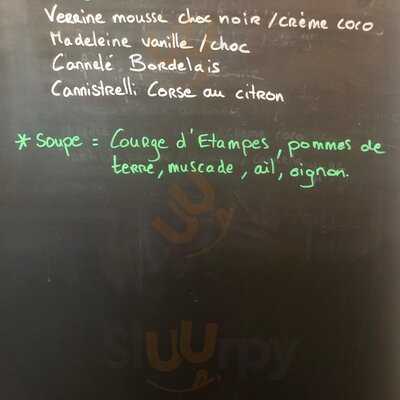 Verrine mousse choc noir / crème coco
Madeleine vanille / choc
Cannelé Bordelais
Cannistrelli Corse au citron
* Soupe = Courge d'Etampes, pommes de
terre, muscade, ail, oignon.
Sluurpy